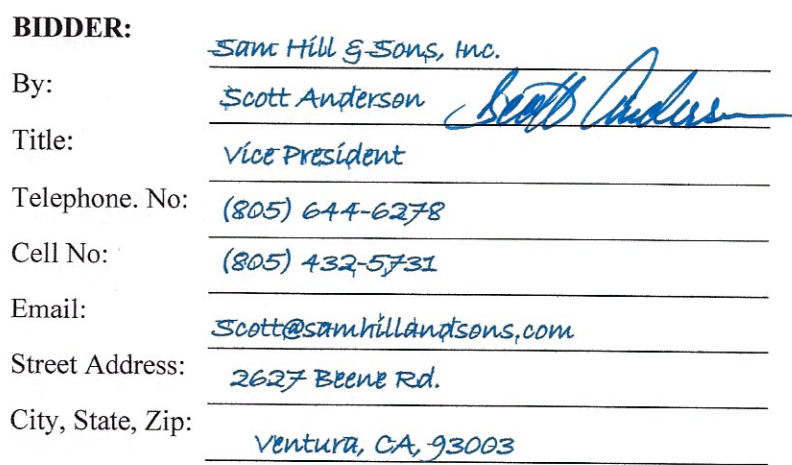 BIDDER: Sam Hill & Sons, Inc.
By: Scott Anderson Scott Anderson
Title: Vice President
Telephone. No: (805) 644-6278
Cell No: (805) 432-5731
Email: Scott@samhillandsons.com
Street Address: 2627 Beene Rd.
City, State, Zip: Ventura, CA, 93003